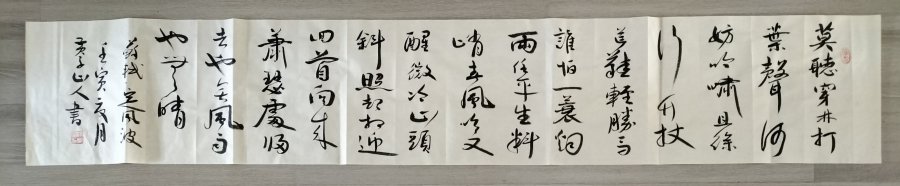 莫聽穿林打
葉聲何
妨吟嘯且徐
行竹杖
芒鞋輕勝馬
誰怕一蓑烟
雨任平生料
峭春風吹
醒微冷山頭
斜照却相迎
回首向來
蕭瑟處歸
去也無風雨
也無晴
蘇軾定風波
壬寅夏月
山人書